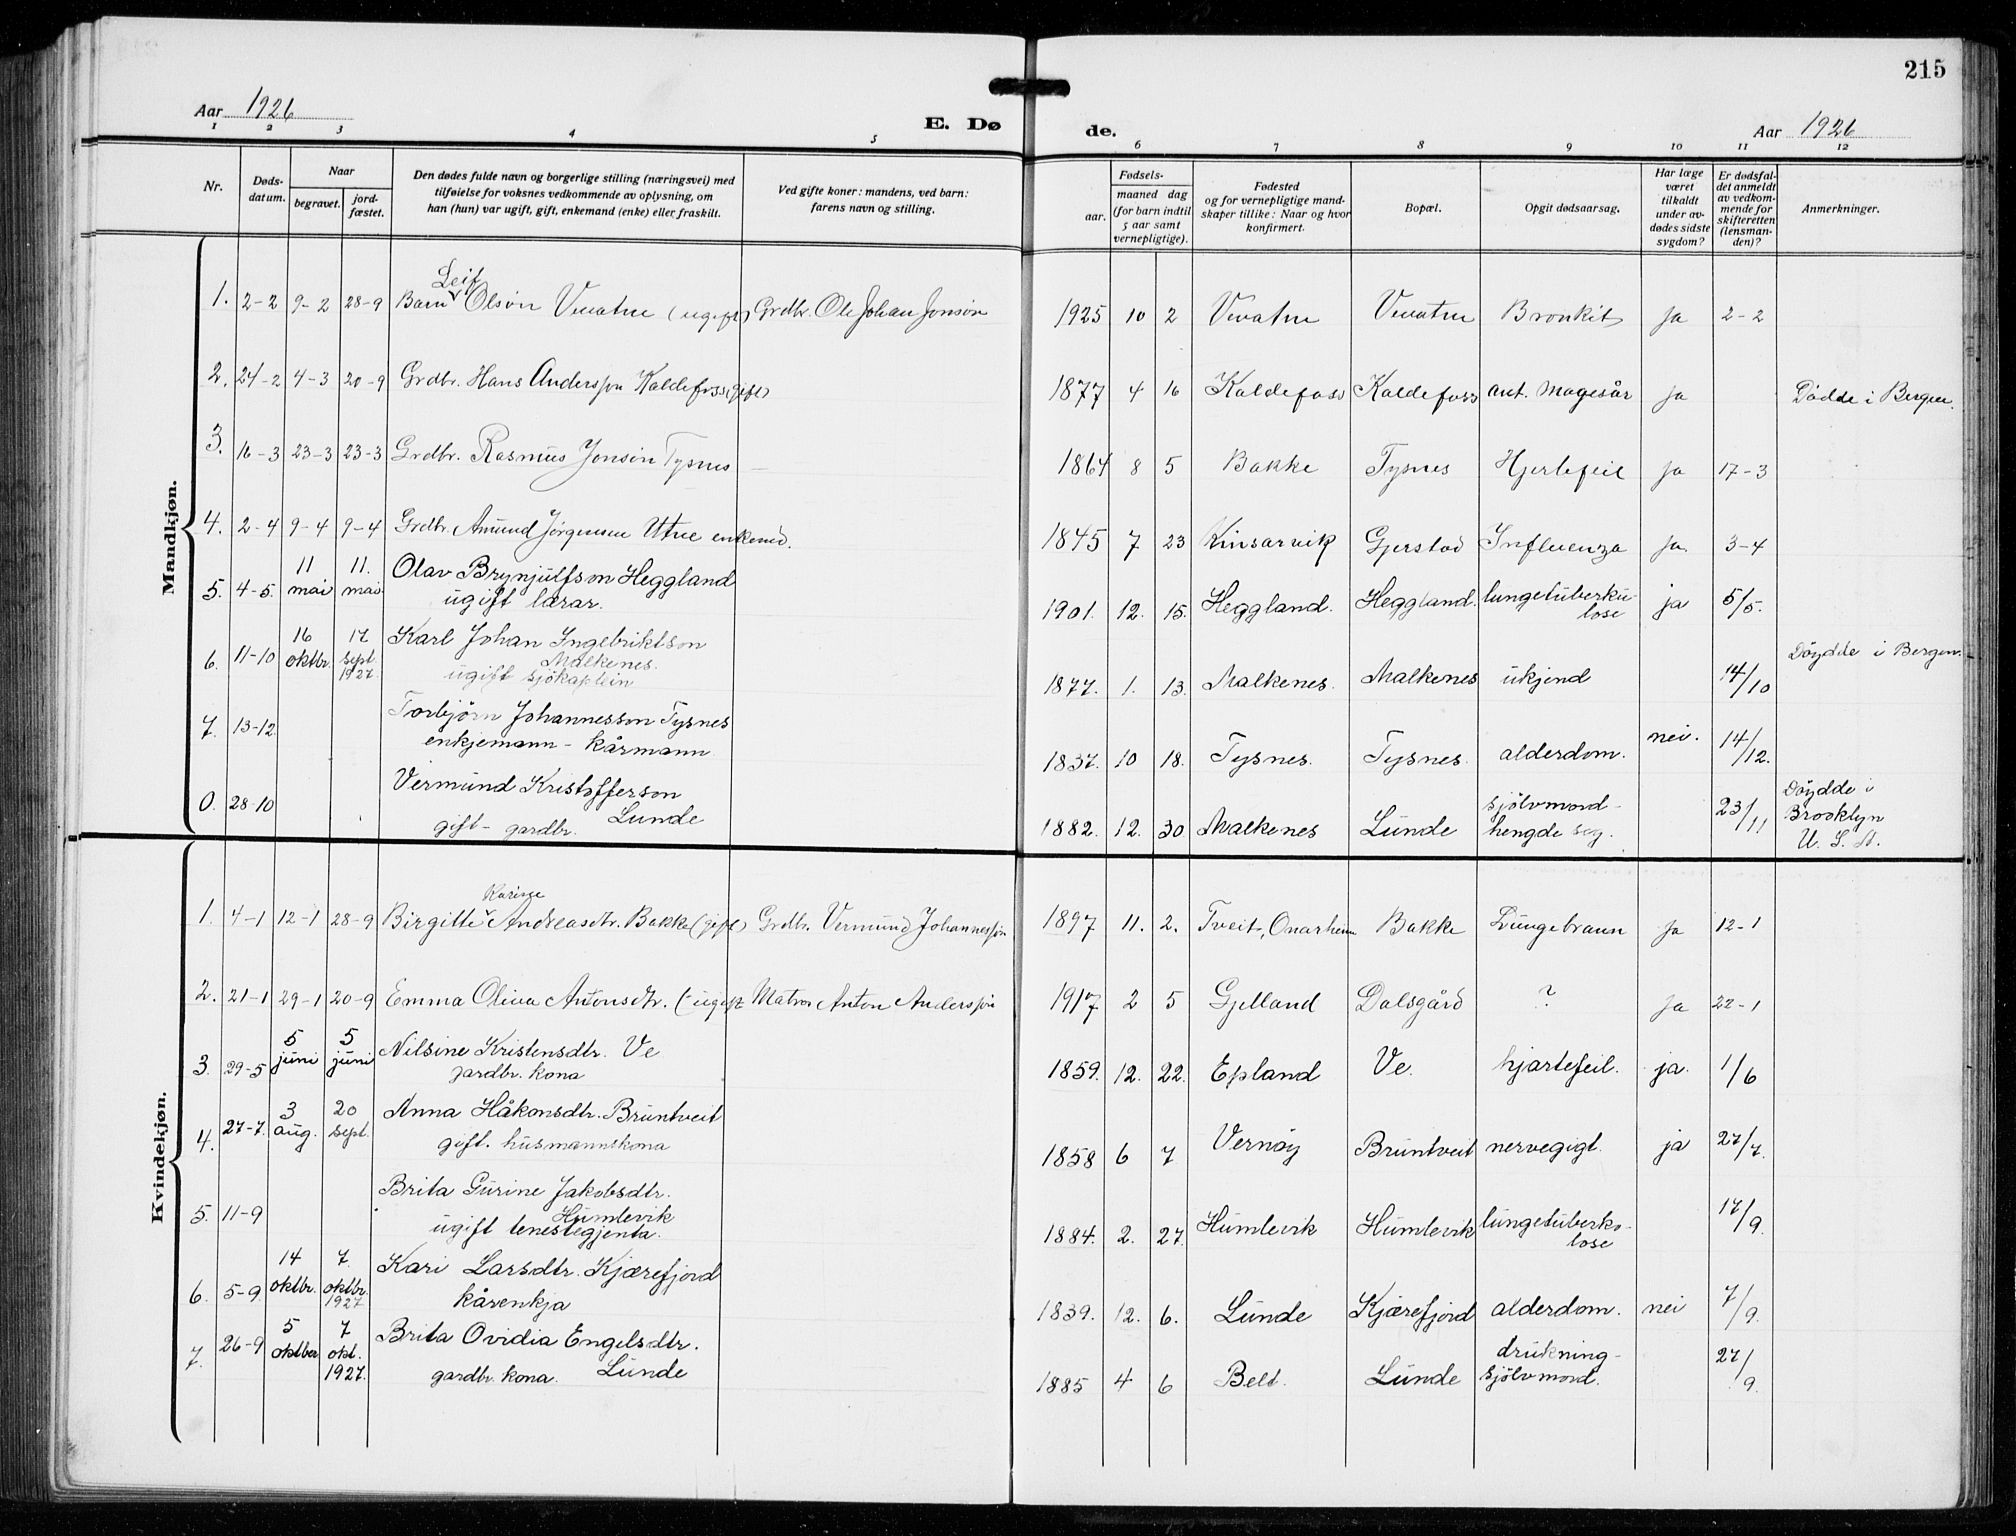 215
Aar 1926
E. Dø
de.
Aar 1926
1 2 3 4 5
6 7 8 9 10 11 12
Nr.
Døds-
datum.
Naar
begravet.
jord-
fæstet.
Den dødes fulde navn og borgerlige stilling (næringsvei) med
tilføielse for voksnes vedkommende av oplysning, om
han (hun) var ugift, gift, enkemand (enke) eller fraskilt.
Ved gifte koner: mandens, ved barn:
farens navn og stilling.
Fødsels-
aar.
maaned dag
(for barn indtil
5 aar samt
vernepligtige).
Fødested
og for vernepligtige mand-
skaper tillike: Naar og hvor
konfirmert.
Bopæl.
Opgit dødsaarsag.
Har læge
været
tilkaldt
under av-
dødes sidste
sygdom?
Er dødsfal-
det anmeldt
av vedkom-
mende for
skifteretten
(lensman-
den)?
Anmerkninger.
Mandkjøn.
Leif
1. 2-2 9-2 28-9 Barn Olsøn Vevatne (ugift) Grdbr. Ole Johan Jonsøn 1925 10 2 Vevatne Vevatne Bronkit Ja 2-2
2. 24-2 4-3 20-9 Grdbr. Hans Anderssøn Kaldefoss (gift) 1877 4 16 Kaldefoss Kaldefoss ant. Magesår Ja Dödde i Bergen.
3. 16-3 23-3 23-3 Grdbr. Rasmus Jonsøn Tysnes — 1864 8 5 Bakke Tysnes Hjertefeil Ja 17-3
4. 2-4 9-4 9-4 Grdbr. Amund Jørgensen Utne enkemd. 1845 7 23 Kinsarvik Gjerstad Influenza Ja. 3-4
5. 4-5. 11 mai 11. mai Olav Brynjulfson Heggland
ugift lærar.
1901. 12. 15. Heggland. Heggland. lungetuberku-
lose ja 5/5.
6. 11-10 16 oktbr. 17 sept. 1927. Karl Johan Ingebriktson
Malkenes.
ugift sjökaptein
1877. 1. 13. Malkenes. Malkenes ukjend 14/10 Döydde i Bergen.
7. 13-12. Torbjörn Johannesson Tysnes
enkjemann - kårmann
1837. 10 18. Tysnes. Tysnes. alderdom. nei. 14/12.
0. 28-10 Vermund Kristofferson
Lunde
gift - gardbr.
1882. 12. 30 Malkenes Lunde sjölvmord -
hengde seg. 23/11 Döydde i
Brooklyn
U. S. A.
Kvindekjøn.
Karine
1. 4-1 12-1 28-9 Birgitte Andreasdtr. Bakke (gift) Grdbr. Vermund Johannessøn 1897 11. 2. Tveit, Onarheim Bakke Lungebraun Ja 12-1
2. 21-1 29-1 20-9 Emma Oliva Antonsdtr. (ugift Matros Anton Anderssøn 1917 2 5 Gjelland Dalsgård ? Ja 22-1
3. 29-5 5 juni 5 juni Nilsine Kristensdtr. Ve
gardbr. kona
1859. 12. 22. Epland Ve. hjartefeil. ja. 1/6
4. 27-7. 3 aug. 20 sept. Anna Håkonsdtr. Bruntveit
gift. husmannskona
1858 6 7 Vernöy Bruntveit nervegigt. ja 27/7.
5. 11-9 Brita Gurine Jakobsdtr.
Humlevik
ugift tenestegjenta.
1884. 2. 27. Humlevik Humlevik lungetuberko-
lose 17/9.
6. 5-9. 14 oktbr. 7. oktbr. 1927. Kari Larsdtr. Kjærefjord
kårenkja
1839. 12. 6. Lunde Kjærefjord alderdom. nei 7/9.
7. 26-9 5 oktber 7 okt. 1927. Brita Ovidia Engelsdtr.
Lunde
gardbr. kona.
1885 4 6 Belt. Lunde drukning -
sjölvmord. 27/9.